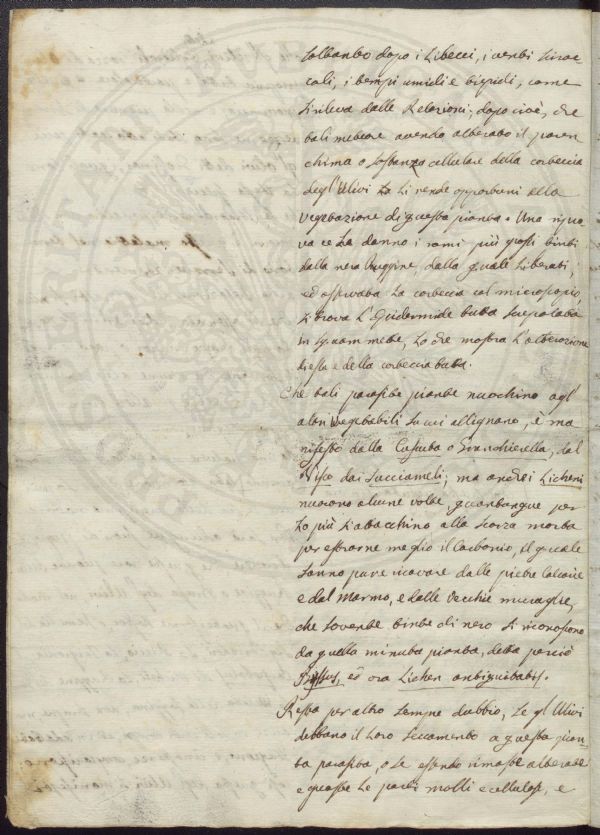 soltanto dopo i Libecci, i venti Siroc-
cali, i tempi umidi e tiepidi, come
si rileva dalle Relazioni; dopo cioè, che
tali meteore avendo alterato il paren-
chima o sostanza cellulare della corteccia
degl'Ulivi la si rende opportuni alla
vegetazione di questa pianta. Una
va ce la danno i rami più grossi tinti
dalla nera Ruggine, dalla quale liberati,
ed osservata la corteccia col microscopio,
si trova l'Epidermide tutta screpolata
in squammette, lo che mostra l'alterazione
di essa e della corteccia tutta.
Che tali parasite piante nuochino agl'
altri vegetabili su cui allignano, è ma
nifesto dalla Cuscuta o Granchierella, dal
Visco dai Succiameli; ma anche i Licheni
nuocono alcune volte, quantunque per
lo più s'attacchino alla scorza morta
per estrarne meglio il Carbonio, il quale
sanno pure ricavare dalle pietre calcarie
e dal Marmo, e dalle vecchie muraglie,
che sovente tinte di nero si riconoscono
da quella minuta pianta, detta perciò
Byssus, ed ora Lichen antiquitatis.
Resta per altro sempre dubbio, se gl'Ulivi
debbano il loro seccamento a questa pian-
ta parasita, o se essendo rimaste alterate
e guaste le parti molli e cellulose, e